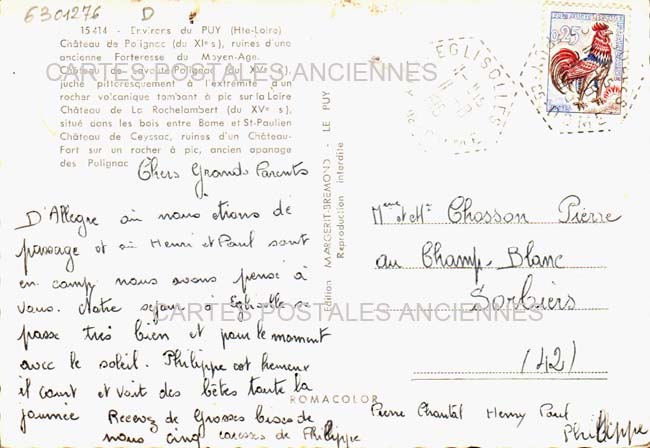 6301276 D
15414 - Environs du PUY (Hte-Loire)
Château de Polignac (du XIe s), ruines d'une
ancienne Forteresse du Moyen-Age.
Château de Lavoute-Polignac (du XVe s),
juché pittoresquement à l'extrémité d'un
rocher volcanique tombant à pic sur la Loire
Château de La Rochelambert (du XVe s),
situé dans les bois entre Borne et St-Paulien
Château de Ceyssac, ruines d'un Château-
Fort sur un rocher à pic, ancien apanage
des Polignac
CARTES POSTALES ANCIENNES
Chers Grands Parents
D'Allegre où nous étions de
passage et où Henri et Paul sont
en camp nous avons pensé à
vous. Notre séjour à Eglisolle se
passe très bien et pour le moment
avec le soleil. Philippe est heureux
il court et voit des bêtes toute la
journée Recevez de Grosses bises de
nous cinq caresses de Philippe
CARTES POSTALES ANCIENNES
Edition MARGERIT-BREMOND - LE PUY
Reproduction interdite
ROMACOLOR
EGLISOLLES
PUY DE DOME
0,25
Mme et Mr Chosson Pierre
au Champ-Blanc
Sorbiers
(42)
Pierre Chantal Henry Paul
Philippe